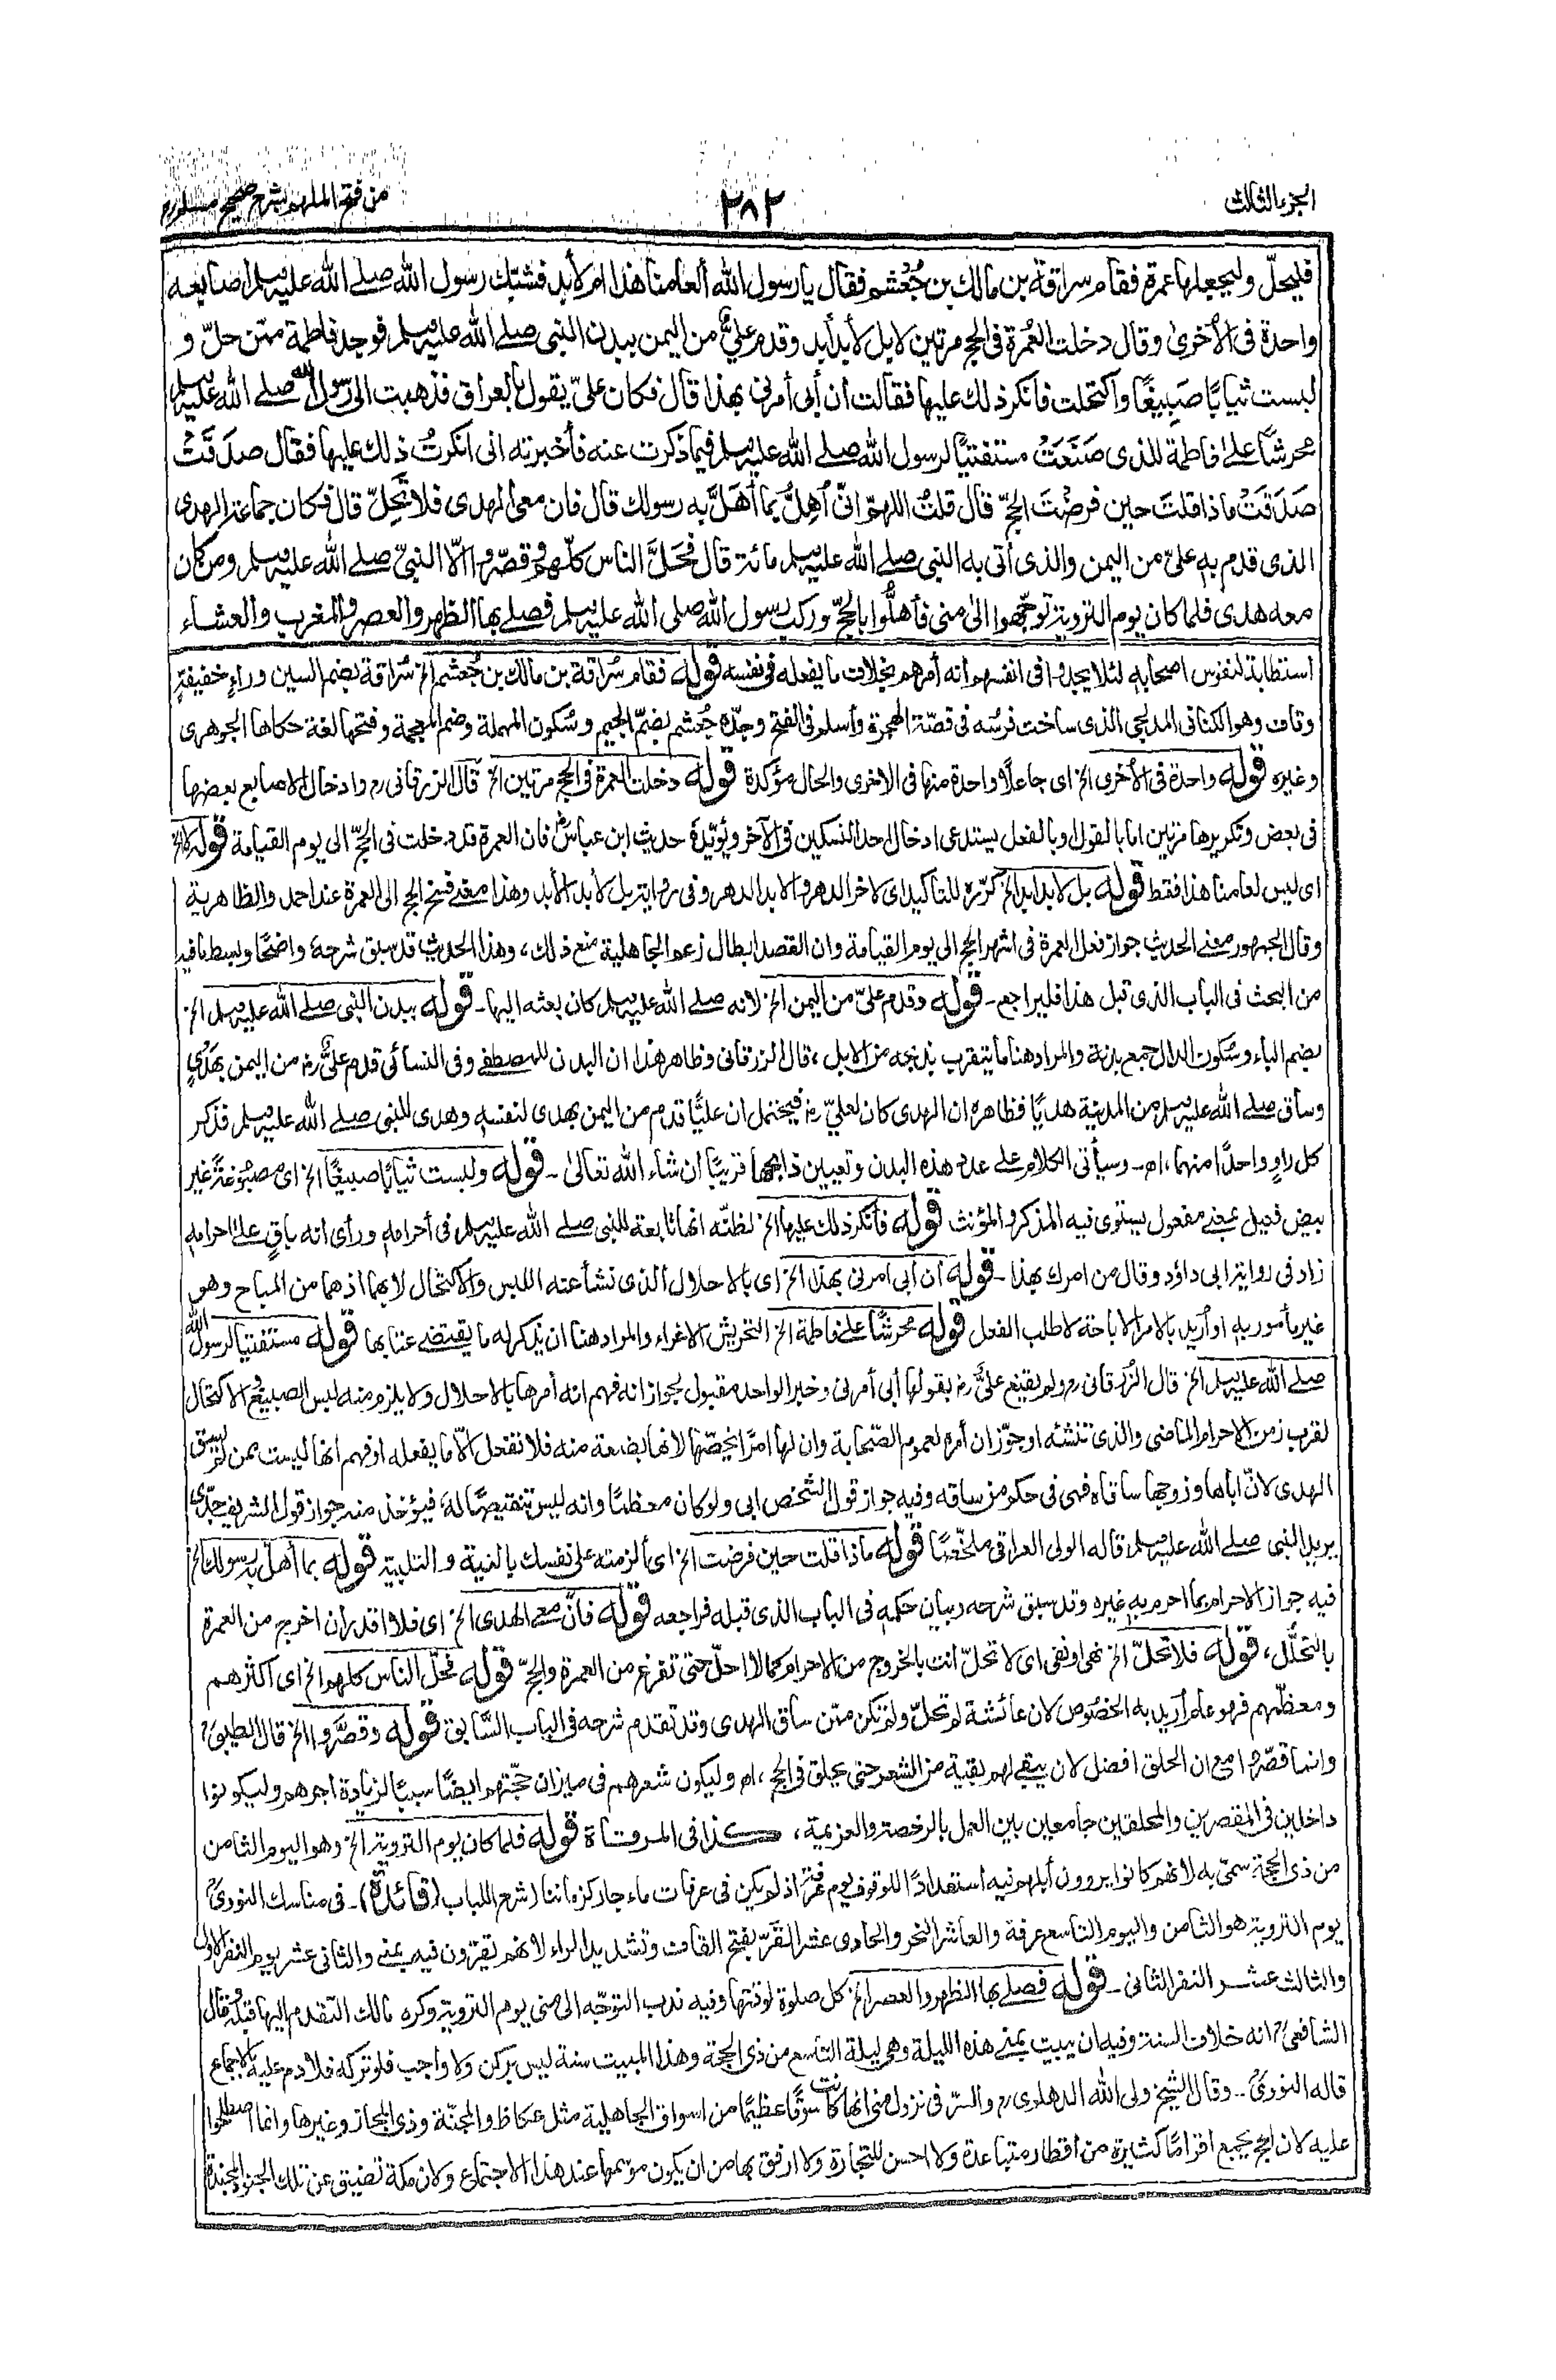 الجزء الثالث
٢٨٢
من فتح الملهم بشرح صحيح مسلم
فليحلّ وليجعلها عمرة فقام سراقة بن مالك بن جُعْشم فقال يا رسول الله ألعامنا هذا ام لأبد فشبّك رسول الله صلى الله عليه وسلم اصابعه
واحدة فى الأخرى وقال دخلت العُمرة فى الحج مرتين لا بل لأبد أبد وقدم عليٌّ من اليمن ببدن النبى صلى الله عليه وسلم فوجد فاطمة ممّن حلّ و
لبست ثيابًا صَبِيغًا واكتحلت فانكر ذلك عليها فقالت ان أبى أمرنى بهذا قال فكان علىّ يقول بالعراق فذهبت الى رسول الله صلى الله عليه وسلم
محرشًا على فاطمة للذى صَنَعَتْ مستفتيًا لرسول الله صلى الله عليه وسلم فيما ذكرت عنه فأخبرته انى انكرتُ ذلك عليها فقال صدَقَتْ
صَدَقَتْ ماذا قلتَ حين فرضْتَ الحجّ قال قلتُ اللهمّ انّى أُهِلُّ بما أهَلَّ به رسولك قال فان معى الهدى فلا تَحِلّ قال فكان جماعة الهدى
الذى قدم به علىّ من اليمن والذى أتى به النبى صلى الله عليه وسلم مائة قال فحَلَّ الناس كلّهم وقصّروا الّا النبىّ صلى الله عليه وسلم ومن كان
معه هدى فلما كان يوم التروية توجّهوا الى منى فأهلُّوا بالحجّ وركب رسول الله صلى الله عليه وسلم فصلى بها الظهر والعصر والمغرب والعشاء
استطابة لنفوس اصحابه لئلا يجدوا فى انفسهم أنه أمرهم بخلاف ما يفعله فى نفسه قوله فقام سُراقة بن مالك بن جُعشم الخ سُراقة بضم السين وراءٍ خفيفةٍ
وقاف وهو الكنانى المدلجى الذى ساخت فرسُه فى قصّة الهجرة وأسلم فى الفتح وجدّه جُعشم بضمّ الجيم وسُكون المهملة وضم المعجمة وفتحها لغة حكاها الجوهرى
وغيره قوله واحدة فى الأخرى الخ اى جاعلًا واحدة منها فى الاخرى والحال مؤكدة قوله دخلت العمرة فى الحج مرتين الخ قال الزرقانى رح وادخال الاصابع بعضها
فى بعض وتكريرها مرتين اما بالقول او بالفعل يستدعى ادخال احد النسكين فى الآخر ويؤيّده حديث ابن عباسؓ فان العمرة قد دخلت فى الحجّ الى يوم القيامة قوله لا الخ
اى ليس لعامنا هذا فقط قوله بل لابد ابد الخ كرّره للتأكيد اى لآخر الدهر والابد الدهر وفى رواية بل لأبد الأبد وهذا معنى فسخ الحج الى العمرة عند احمد والظاهرية
وقال الجمهور معنى الحديث جواز فعل العمرة فى اشهر الحج الى يوم القيامة وان القصد ابطال زعم الجاهلية منع ذلك، وهذا الحديث قد سبق شرحهٗ واضحًا وبسطنا فيه
من البحث فى الباب الذى قبل هذا فليراجع - قوله وقدم علىّ من اليمن الخ لانه صلى الله عليه وسلم كان بعثه اليها - قوله ببدن النبى صلى الله عليه وسلم الخ
بضم الباء وسُكون الدال جمع بدنة والمراد هنا ما يتقرب بذبحه من الابل، قال الزرقانى وظاهر هذا ان البدن للمصطفى وفى النسائى قدم علىٌّ رض من اليمن بهدىٍ
وساق صلى الله عليه وسلم من المدينة هديًا فظاهره ان الهدى كان لعلىّ رض فيحتمل ان عليًّا قدم من اليمن بهدى لنفسه وهدى للنبى صلى الله عليه وسلم فذكر
كل راوٍ واحدًا منهما، اهـ - وسيأتى الكلام على عدد هذه البدن وتعيين ذابحها قريبًا ان شاء الله تعالىٰ - قوله ولبست ثيابًا صبيغًا الخ اى مصبوغةً غير
بيض فعيل بمعنى مفعول يستوى فيه المذكر والمؤنث قوله فأنكر ذلك عليها الخ لظنّه انها تابعة للنبى صلى الله عليه وسلم فى أحرامه ورأى انه باقٍ على احرامه
زاد فى رواية ابى داؤد وقال من امرك بهذا - قوله ان أبى امرنى بهذا الخ اى بالاحلال الذى نشأ عنه اللبس والاكتحال لا بهما اذ هما من المباح وهو
غير مأمور به او أريد بالامر الاباحة لا طلب الفعل قوله محرشًا على فاطمة الخ التحريش الاغراء والمراد هنا ان يذكر له ما يقتضى عتابها قوله مستفتيا لرسول الله
صلى الله عليه وسلم الخ قال الزرقانى رح ولم يقنع علىٌّ رض بقولها أبى أمرنى وخبر الواحد مقبول لجواز انه فهم انه أمرها بالاحلال ولا يلزم منه لبس الصبيغ والاكتحال
لقرب زمن الاحرام الماضى والذى تنشئه او جوّز ان أمره لعموم الصّحابة وان لها امرًا يخصّها لانها بضعة منه فلا تفعل الّا ما يفعله او فهم انها ليست ممن لم يسق
الهدى لانّ اباها وزوجها ساقاه فهى فى حكم من ساقه وفيه جواز قول الشخص ابى ولو كان معظمًا وانه ليس تنقيصًا له، فيؤخذ منه جواز قول الشريف جدّى
يريد النبى صلى الله عليه وسلم قاله الولى العراقى ملخّصًا قوله ماذا قلت حين فرضت الخ اى ألزمته على نفسك بالنية والتلبية قوله بما أهلّ به رسولك الخ
فيه جواز الاحرام بما احرم به غيره وقد سبق شرحه وبيان حكمه فى الباب الذى قبله فراجعه قوله فانّ معى الهدى الخ اى فلا اقدر ان اخرج من العمرة
بالتحلّل، قوله فلا تحلّ الخ نهى او نفى اى لا تحلّ أنت بالخروج من الاحرام كما لا احلّ حتى تفرغ من العمرة والحجّ قوله فحلّ الناس كلهم الخ اى اكثرهم
ومعظّمهم فهو عام أريد به الخصوص لان عائشة لم تحلّ ولم تكن ممّن ساق الهدى وقد تقدم شرحه فى الباب السّابق قوله وقصّروا الخ قال الطيبى رح
وانما قصّروا مع ان الحلق افضل لان يبقى لهم بقية من الشعر حتى يحلق فى الحج، اهـ وليكون شعرهم فى ميزان حجّتهم ايضًا سببًا لزيادة اجرهم وليكونوا
داخلين فى المقصرين والمحلقين جامعين بين العمل بالرخصة والعزيمة، كذا فى المرقاة قوله فلما كان يوم التروية الخ وهو اليوم الثامن
من ذى الحجة سمّى به لانهم كانوا يروون أبلهم فيه استعدادًا للوقوف يوم عرفة اذ لم يكن فى عرفات ماء جار كزماننا (شرح اللباب (فائدة) - فى مناسك النووى رح
يوم التروية هو الثامن واليوم التاسع عرفة والعاشر النحر والحادى عشر القَرّ بفتح القاف وتشديد الراء لانهم يقرّون فيه بمنى والثانى عشر يوم النفر الاول
والثالث عشر النفر الثانى - قوله فصلى بها الظهر والعصر الخ كل صلوة لوقتها وفيه ندب التوجّه الى منى يوم التروية وكره مالك التقدم اليها قبله وقال
الشافعى رح انه خلاف السنة وفيه ان يبيت بمنى هذه الليلة وهى ليلة التاسع من ذى الحجة وهذا المبيت سنة ليس بركن ولا واجب فلو تركه فلا دم عليه بالاجماع
قاله النووى رح - وقال الشيخ ولى الله الدهلوى رح والسّر فى نزول منى انها كانت سوقًا عظيمًا من اسواق الجاهلية مثل عكاظ والمجنّة وذى المجاز وغيرها وانما اصطلحوا
عليه لان الحج يجمع اقوامًا كثيرة من اقطار متباعدة ولا احسن للتجارة ولا ارفق بها من ان يكون موسمها عند هذا الاجتماع ولان مكة تضيق عن تلك الجنود المجندة